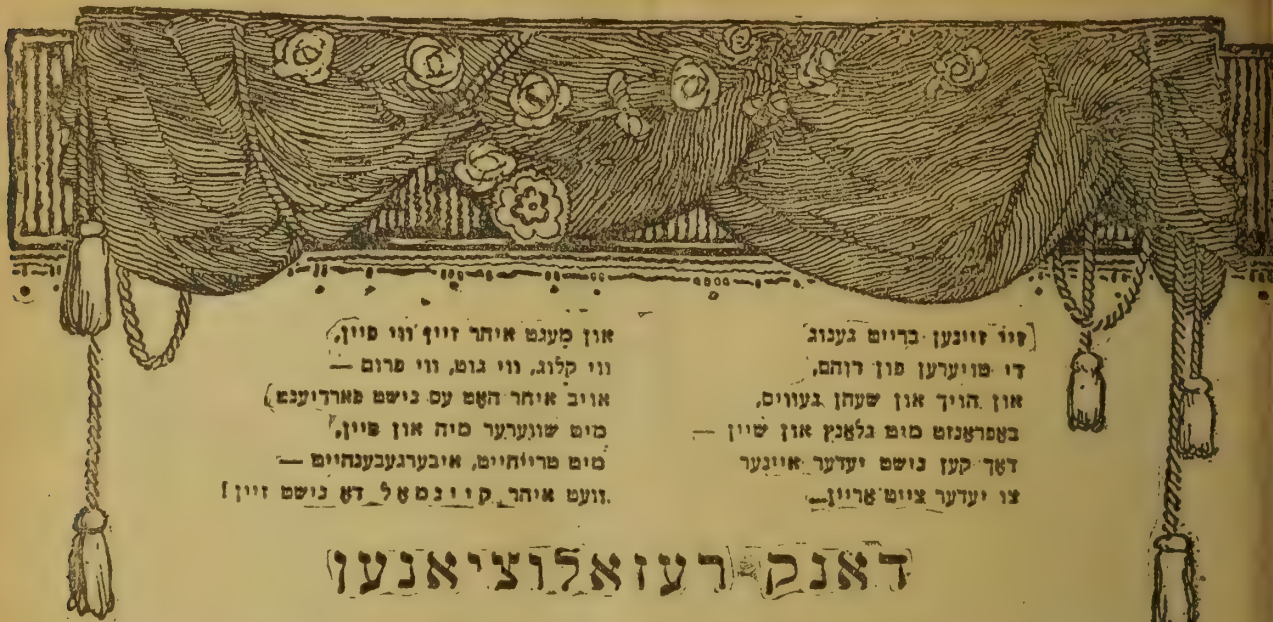 זיי זיינען ברייט גענוג
די טויערן פון רוהם,
און הויך און שעהן געוויס,
באפראנזט מיט גלאנץ און שיין —
דאך קען נישט יעדער איינער
צו יעדער צייט אריין.
און מעגט איהר זיין ווי פיין,
ווי קלוג, ווי גוט, ווי פרום —
אויב איהר האט עס נישט פארדיענט
מיט שווערער מיה און פיין,
מיט טרייהייט, איבערגעבענהייט —
וועט איהר קיינמאל דא נישט זיין!
דאנק-רעזאלוציאנען